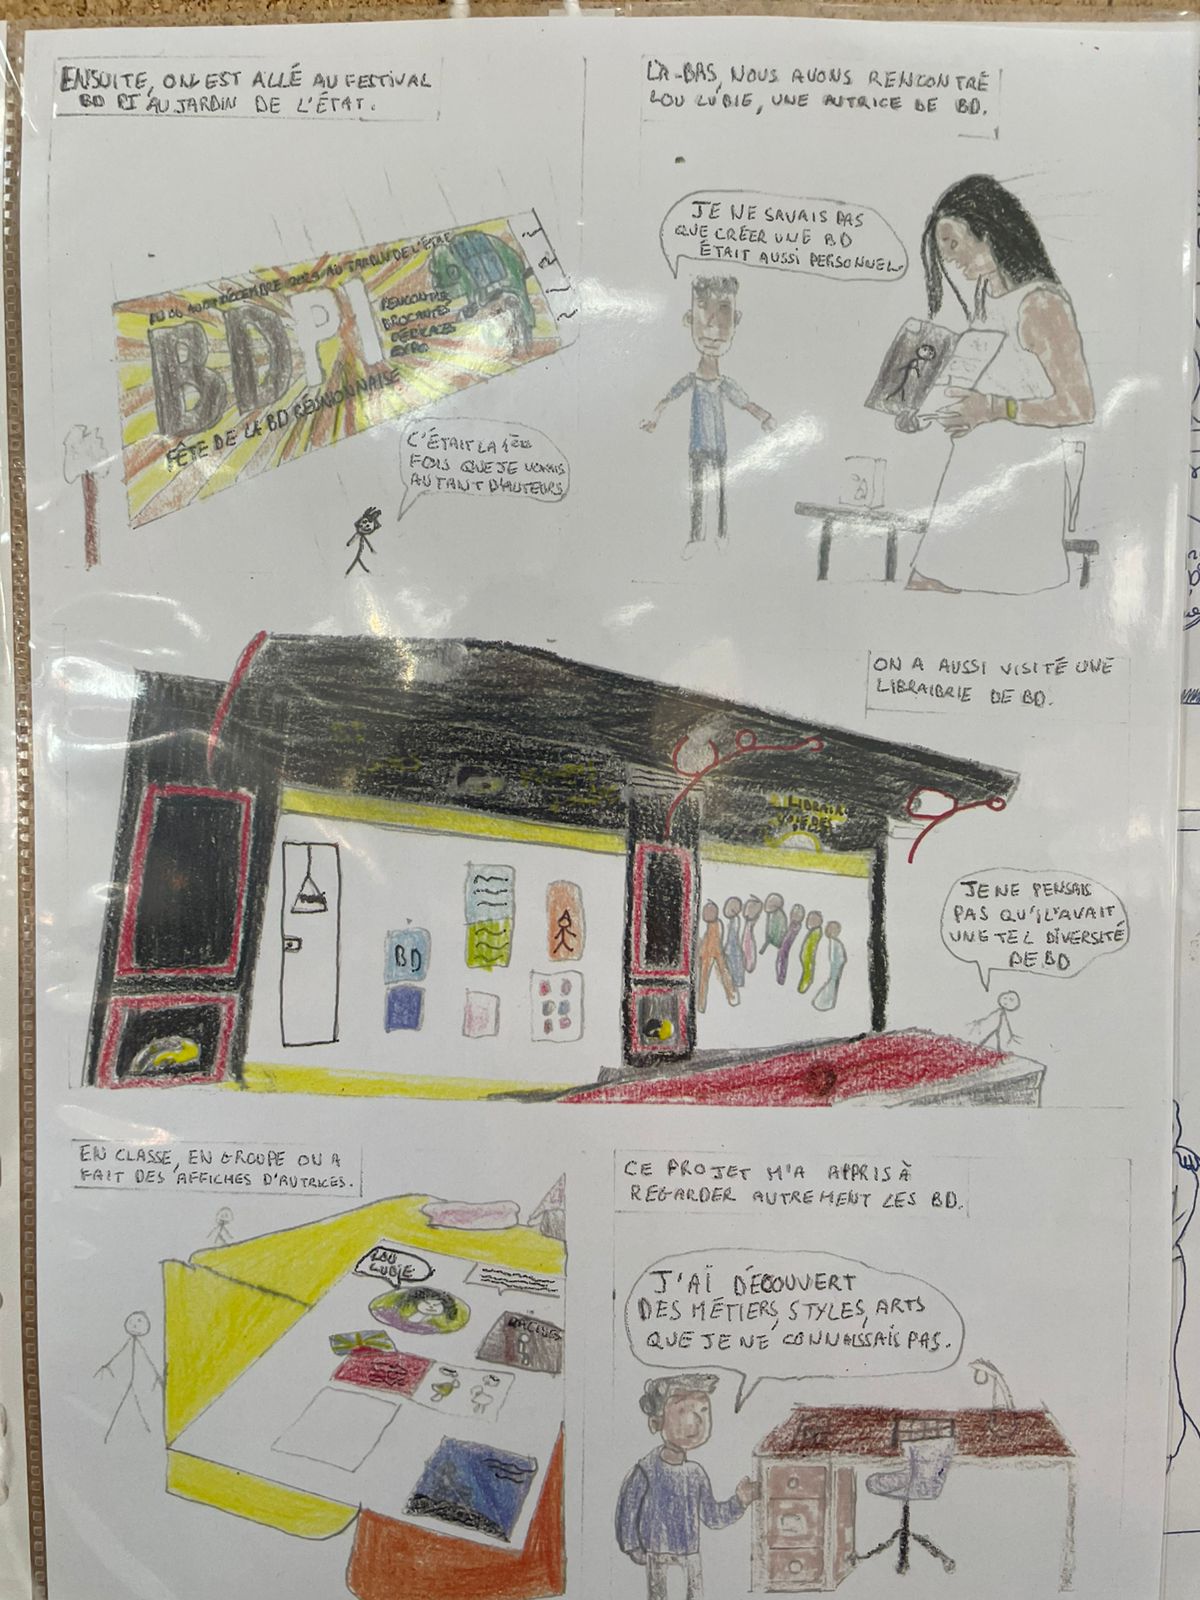 ENSUITE, ON EST ALLÉ AU FESTIVAL
BD PI AU JARDIN DE L'ÉTAT.
LÀ-BAS, NOUS AVONS RENCONTRÉ
LOU LUBIE, UNE AUTRICE DE BD.
DÉCEMBRE AU JARDIN DE L'ÉTAT
BDPI
RENCONTRE
BROCANTES
DÉDICACES
EXPO
FÊTE DE LA BD RÉUNIONNAISE
C'ÉTAIT LA 1ÈRE
FOIS QUE JE VOYAIS
AUTANT D'AUTEURS
JE NE SAVAIS PAS
QUE CRÉER UNE BD
ÉTAIT AUSSI PERSONNEL.
ON A AUSSI VISITÉ UNE
LIBRAIBRIE DE BD.
BD
JE NE PENSAIS
PAS QU'IL Y AVAIT
UNE TEL DIVERSITÉ
DE BD
EN CLASSE, EN GROUPE ON A
FAIT DES AFFICHES D'AUTRICES.
LOU
LUBIE
RACINES
CE PROJET M'A APPRIS À
REGARDER AUTREMENT LES BD.
J'AÏ DÉCOUVERT
DES MÉTIERS, STYLES, ARTS
QUE JE NE CONNAISSAIS PAS.